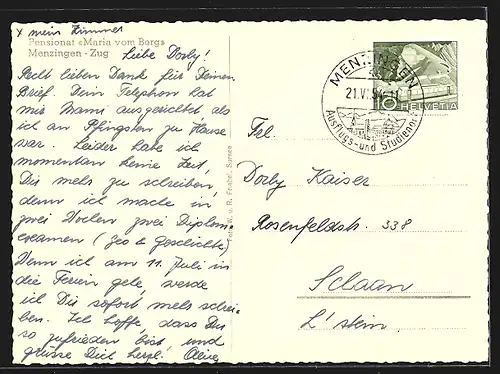 x mein Zimmer
Pensionat «Maria vom Berg»
Menzingen - Zug
Liebe Dorly!
Recht lieben Dank für Deinen
Brief. Dein Telephon hat
mir Mami ausgerichtet als
ich am Pfingsten zu Hause
war. Leider habe ich
momentan keine Zeit,
Dir mehr zu schreiben,
denn ich mache in
zwei Wochen zwei Diplom-
examen (Geo & Geschichte)
Wenn ich am 11. Juli in
die Ferien gehe, werde
ich Dir sofort mehr schrei-
ben. Ich hoffe, dass Du
so zufrieden bist und
grüsse Dich herzl.
MENZINGEN
Ausflugs- und Studienort
10 HELVETIA
Frl.
Dorly Kaiser
Rosenfeldstr. 338
Schaan
L'stein.